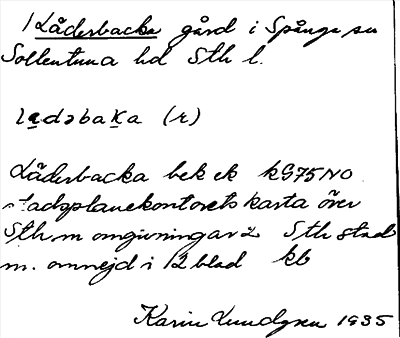 1 Läderbacka gård i Spånga sn
Sollentuna hd Sth l.
lädəbaka (r)
Läderbacka bek ek kG75NO
stadsplanekontorets karta över
Sth m omgivningar 2 Sth stad
m. omnejd i 12 blad kb
Karin Lundgren 1935